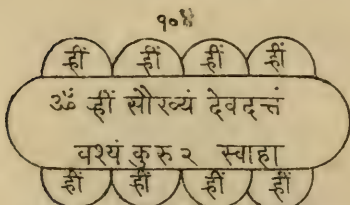 १०४
ह्रीं ह्रीं ह्रीं ह्रीं
ॐ ह्रीं सौरव्यं देवदत्तं
वश्यं कुरु २ स्वाहा
ह्रीं ह्रीं ह्रीं ह्रीं